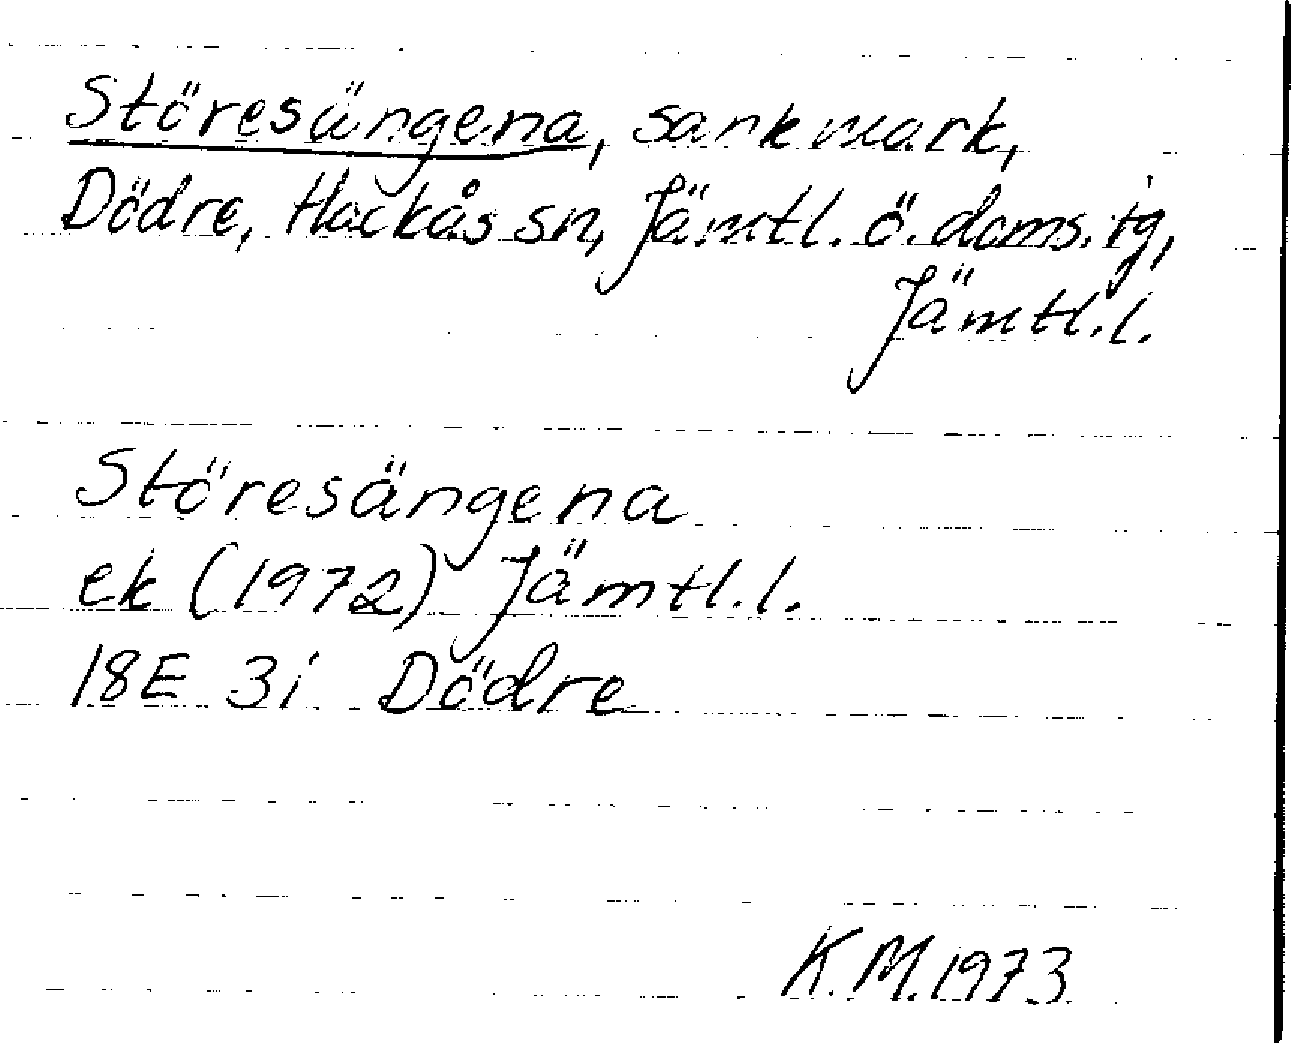 Störesängena, sankmark,
Dödre, Hackås sn, Jämtl. ö. doms. tg,
Jämtl. l.
Störesängena
ek (1972) Jämtl. l.
18E 3i Dödre
K. M. 1973